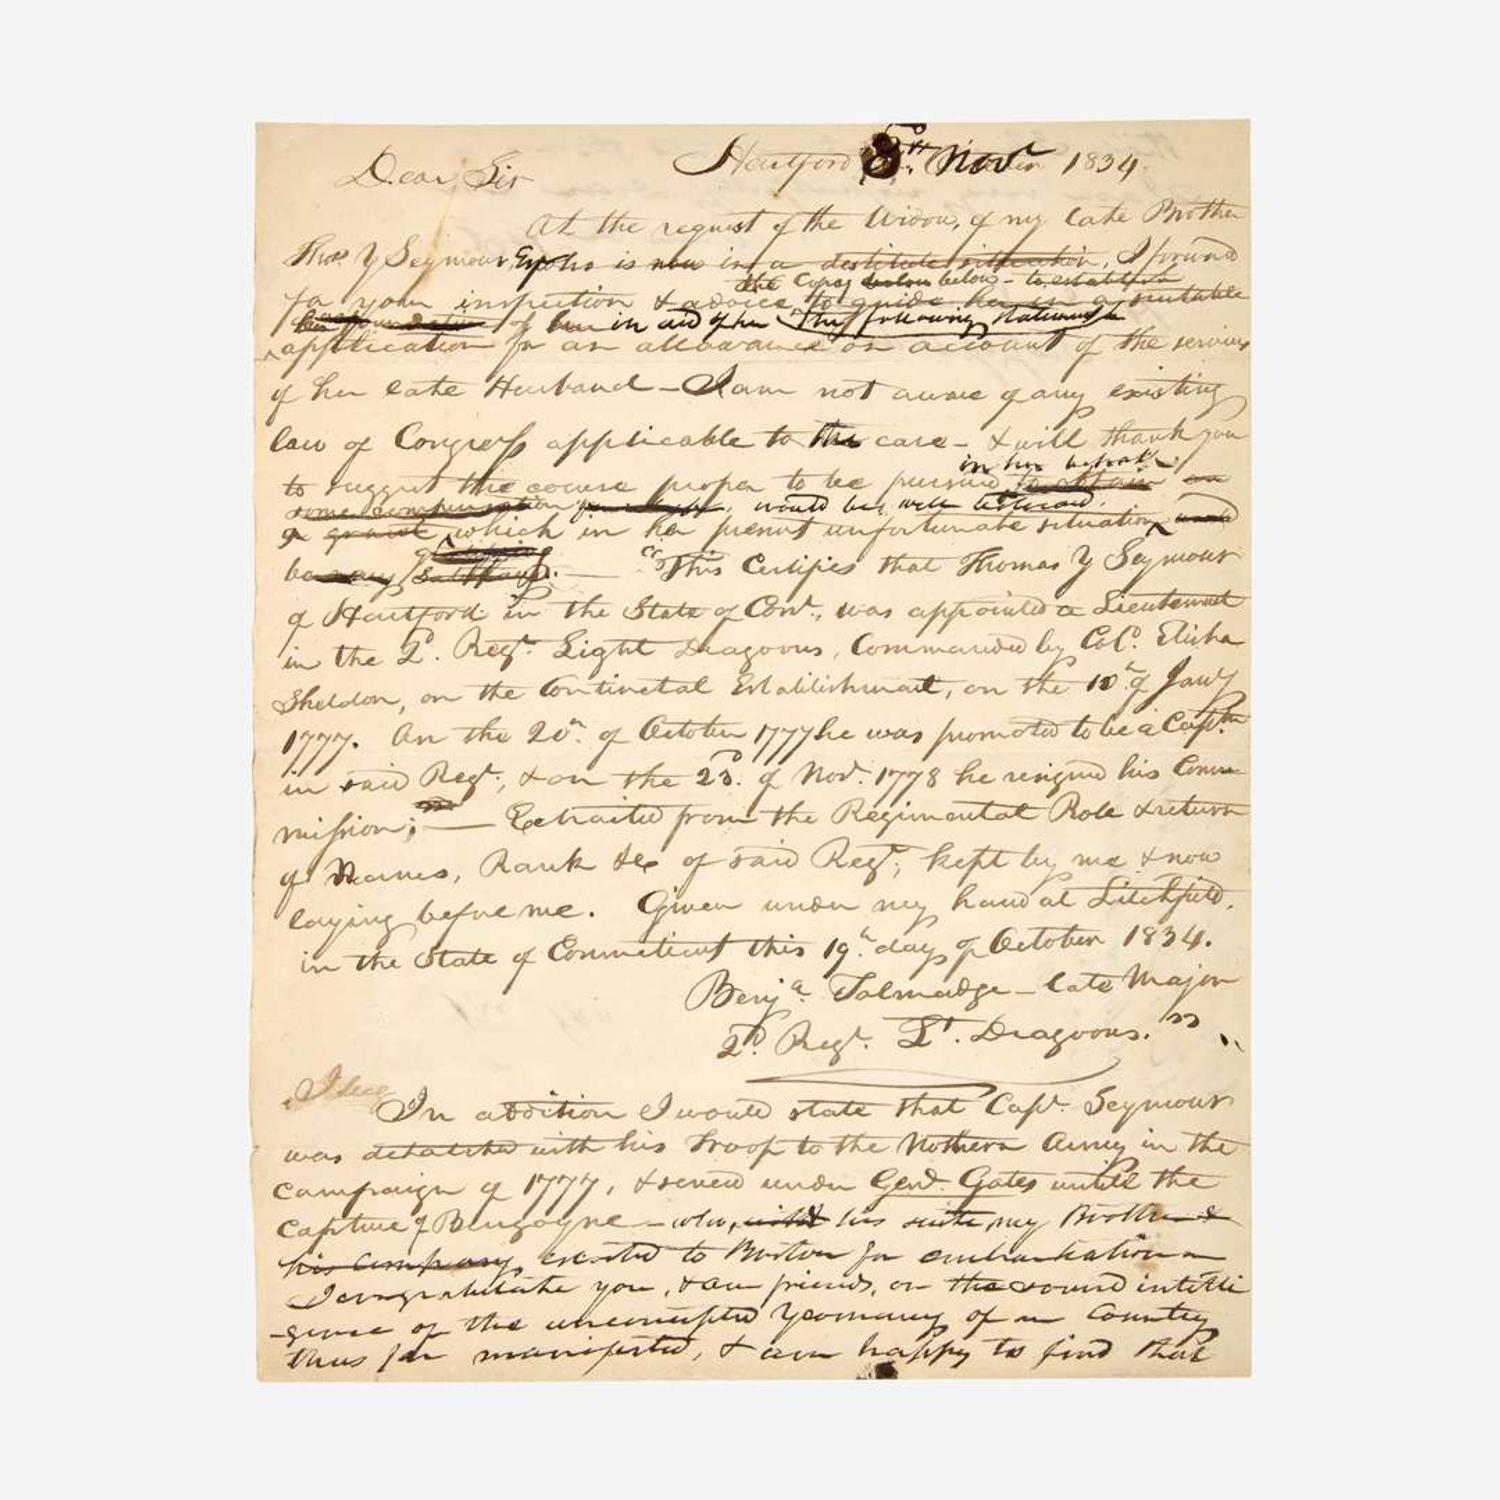 Hartford 8th Novr 1834.
Dear Sir
At the request of the Widow, of my late Brother
Thos. Y Seymour, Esqr who is now in a destitute situation, I forward
the Copy below - to establish
for your inspection & advice to guide her in a suitable
in aid of her the following statements
application for an allowance on account of the services
of her late Husband - I am not aware of any existing
law of Congress applicable to the case - & will thank you
in her behalf
to suggest the course proper to be pursued to obtain an
some compensation would be well bestowed.
or grant which in her present unfortunate situation would
be
"This Certifies that Thomas Y Seymour
of Hartford in the State of Cont., was appointed a Lieutenant
in the 2d. Regt. Light Dragoons, Commanded by Col. Elisha
Sheldon, on the Continetal Establishment, on the 10th of Jany
1777. On the 20th. of October 1777 he was promoted to be a Captn
in said Regt; & on the 23d. of Novr. 1778 he resigned his Comm-
mission; — Extracted from the Regimental Role & return
of Names, Rank &c of said Regt; kept by me & now
laying before me. Given under my hand at Litchfield.
in the State of Connecticut this 19th day of October 1834.
Benja. Talmadge - late Major
2d. Regt. Lt. Dragoons. "
In addition I would state that Capt. Seymour
was detatched with his Troop to the Nothern Army in the
campaign of 1777, & served under Genl. Gates untill the
capture of Burgoyne - who, with his suite, my Brother &
his Company, escorted to Boston for embarkation
I congratulate you, & our friends, on the sound intelli
-gence of the uncorrupted Yeomanry of our Country
thus far manifested, & am happy to find that